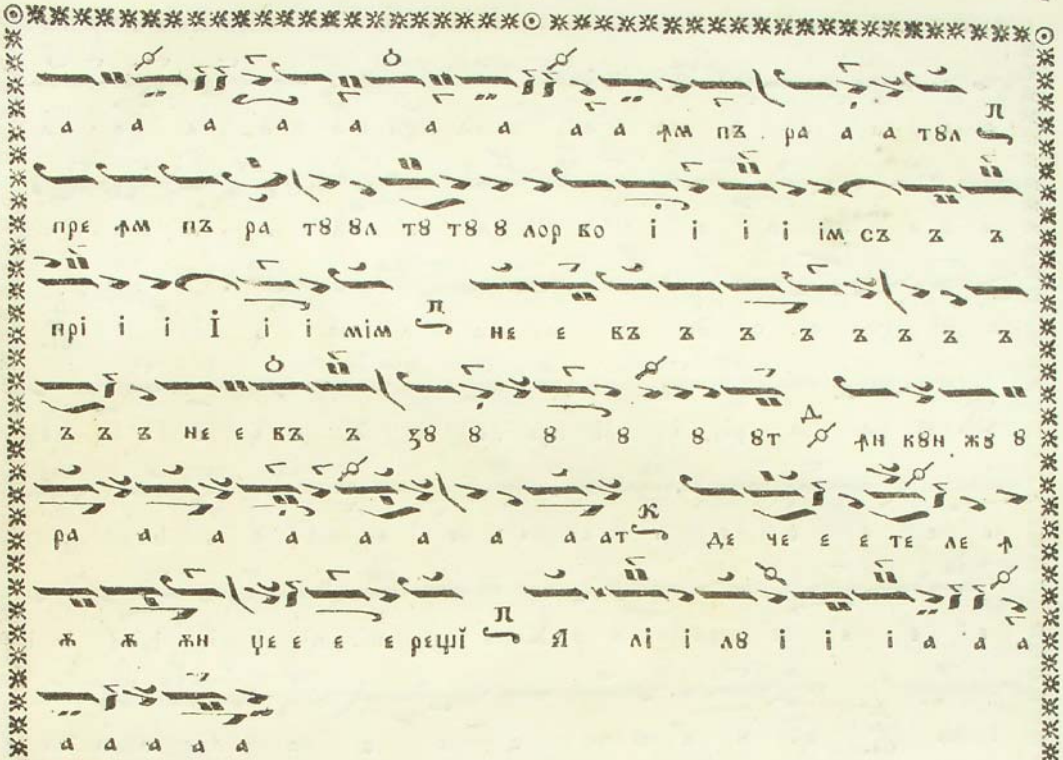 а а а а а а а а а ꙟм пъ ра а а тꙋл
пре ꙟм пъ ра тꙋ ꙋл тꙋ тꙋ ꙋ лор во і і і і ім съ ъ ъ
прі і і і і і мім не е въ ъ ъ ъ ъ ъ ъ
ъ ъ ъ не е въ ъ зꙋ ꙋ ꙋ ꙋ ꙋ ꙋт ꙟн кꙋн жꙋ ꙋ
ра а а а а а а а ат де че е е те ле ꙟ
ѫ ѫ ѫн це е е е рещй Я лі і лꙋ і і і а а а
а а а а а